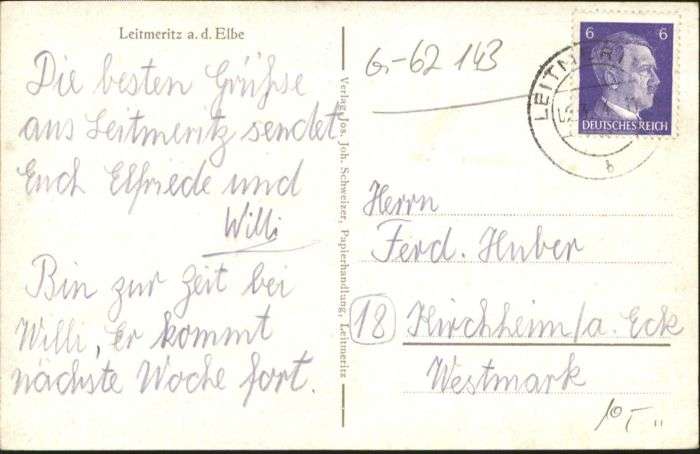 Leitmeritz a. d. Elbe
Die besten Grühse
aus Leitmeritz sendet
Euch Elfriede und
Willi
Bin zur Zeit bei
Willi, Er kommt
nächste Woche fort.
Verlag Jos. Joh. Schweizer, Papierhandlung, Leitmeritz
G-62 143
6 6
DEUTSCHES REICH
LEITM
b
Herrn
Ferd. Huber
18 Kirchheim/a. Eck
Westmark